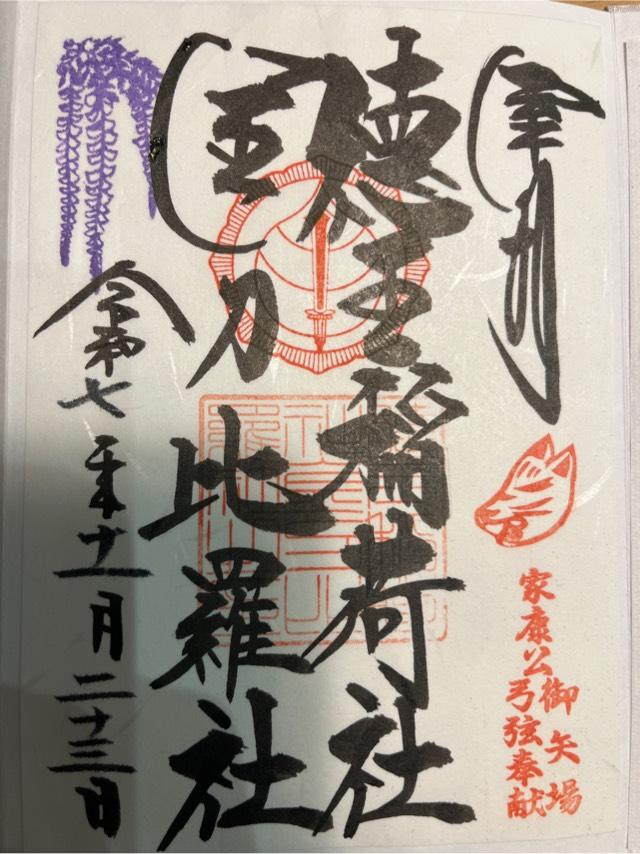 奉拝
御矢場
家康公弓弦奉献
徳王稲荷社
金刀比羅社
令和七年十一月二十三日